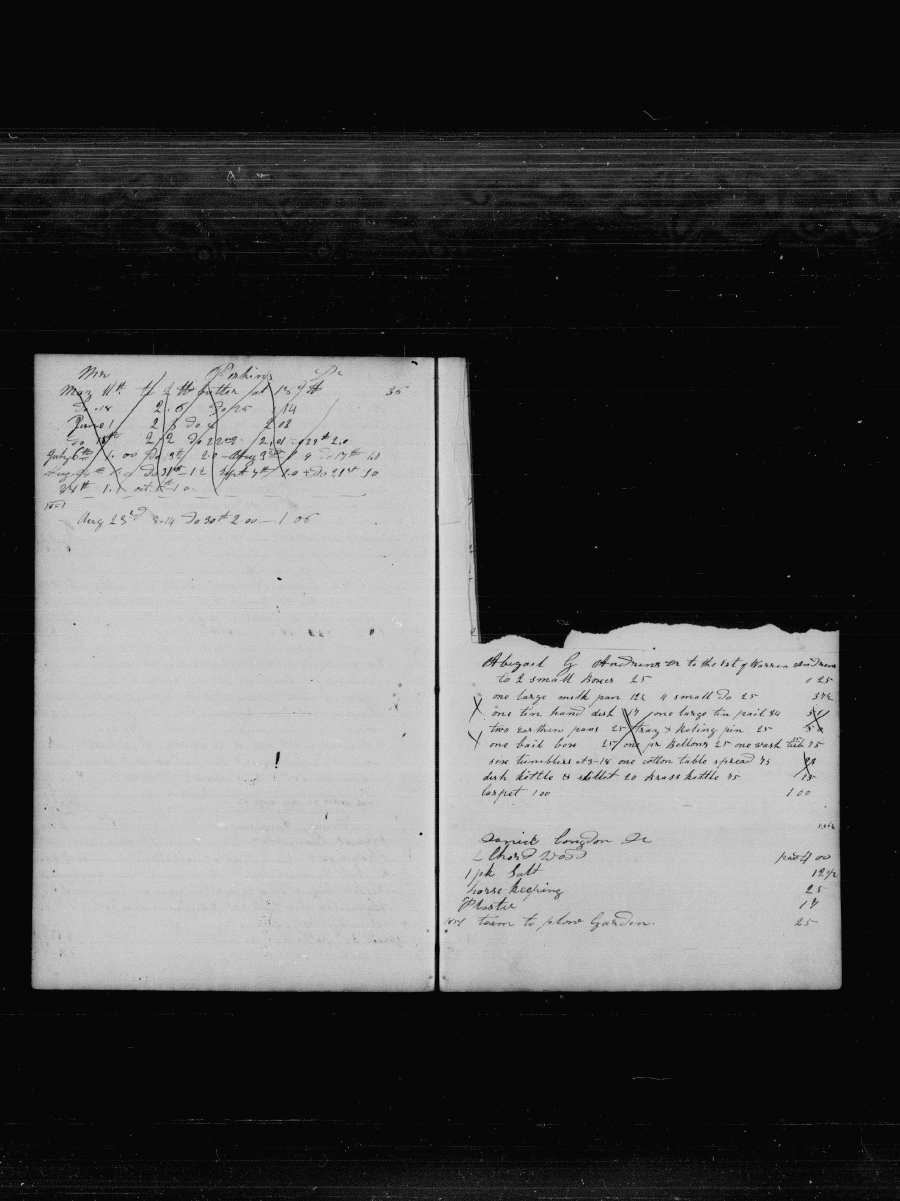 Mrs Perkins Dr
May 11th 2 lb butter at 18 35
Do 18 2.6 Do 25 14
June 1 2 3 Do 8 2 03
Do 15th 2 2 Do 22 2.01 29th 2.0
July 6th 1.00 Do 13th 2.0 Aug 3rd 1 9 Do 17th
Do 31st 1 2 Sept 7th 1.0 Do 21st 10
28th 1.1 oct 10
Aug 23rd 2-14 Do 30th 2 00 — 1 06
Abigail G Andrews Dr to the Est of Warren Andrews
to 2 small Boxes 25 0 25
one large milk pan 12½ 4 small Do 25 37½
one tin hand dish 17 one large tin pail 34 51
two earthen pans 25 tray & Roling pin 25 50
one bail box 25 one pr Bellows 25 one wash tub 75
six tumblers at 3-18 one cotton table spread 75
dish kettle & skillet 20 brass kettle 75
Carpet 100 1 00
Daniel Congdon Dr
Chord Wood paid 4 00
1 pk Salt 12½
horse keeping 25
Plaster 17
team to plow Garden. 25